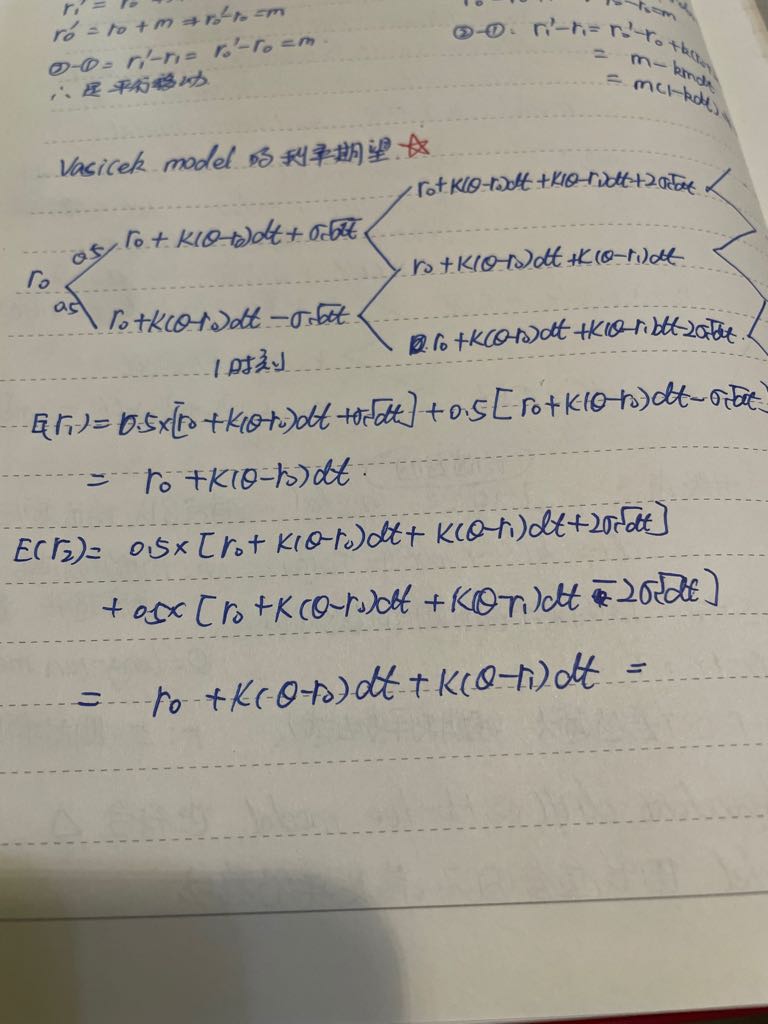 r₁' = r₀
r₀' = r₀ + m ⇒ r₀' - r₀ = m
②-① = r₁' - r₁ = r₀' - r₀ = m.
∴ 是平行移动
r₀ = m
②-①: r₁' - r₁ = r₀' - r₀ + k(
= m - kmdt
= m(1-kdt)
Vasicek model 的利率期望 ☆
r₀ + K(θ-r₀)dt + K(θ-r₁)dt + 2σ√dt
0.5 r₀ + K(θ-r₀)dt + σ√dt
r₀
r₀ + K(θ-r₀)dt + K(θ-r₁)dt
0.5 r₀ + K(θ-r₀)dt - σ√dt
r₀ + K(θ-r₀)dt + K(θ-r₁)dt - 2σ√dt
1时刻
E(r₁) = 0.5×[r₀ + K(θ-r₀)dt + σ√dt] + 0.5[r₀ + K(θ-r₀)dt - σ√dt]
= r₀ + K(θ-r₀)dt.
E(r₂) = 0.5×[r₀ + K(θ-r₀)dt + K(θ-r₁)dt + 2σ√dt]
+ 0.5×[r₀ + K(θ-r₀)dt + K(θ-r₁)dt - 2σ√dt]
= r₀ + K(θ-r₀)dt + K(θ-r₁)dt =